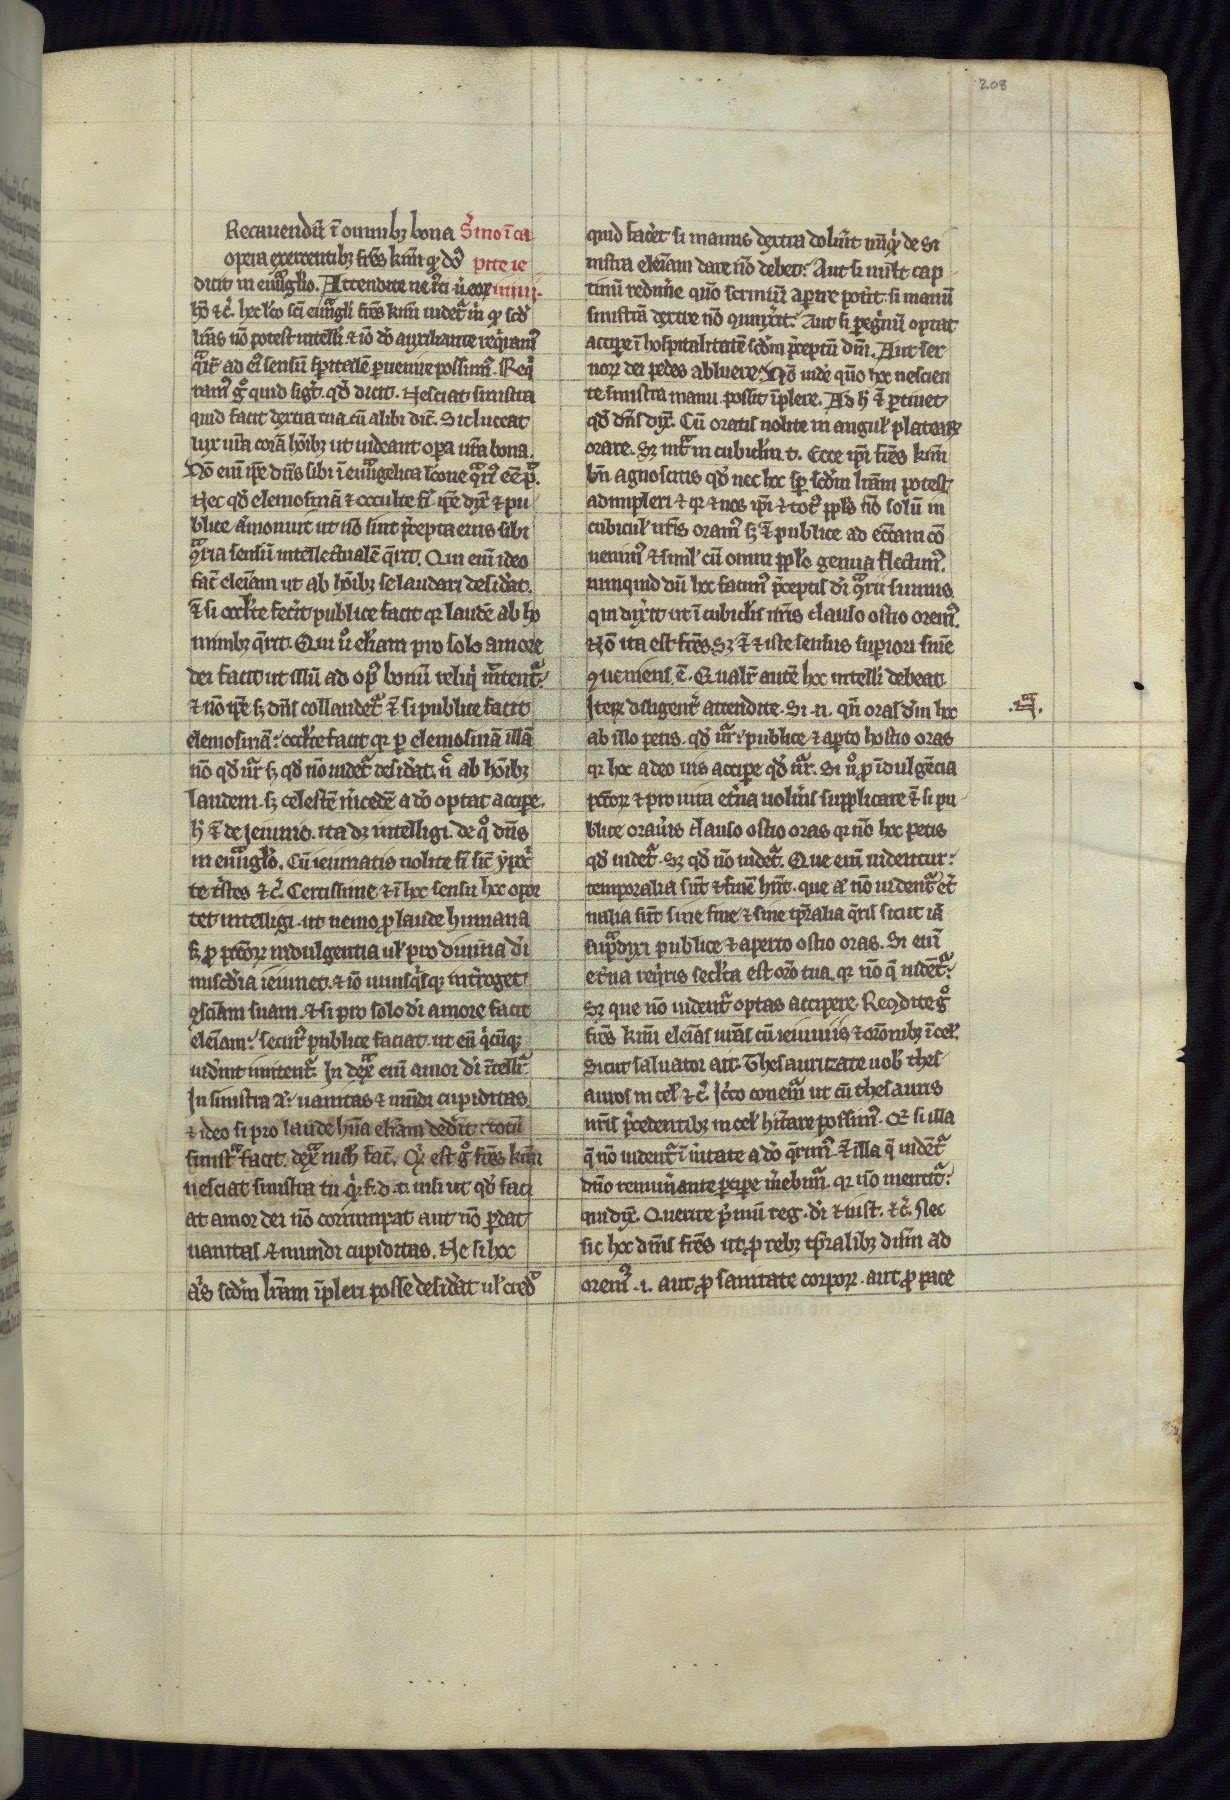 208
Recauendū ī omnibꝫ bona S̄mo ī ca
opera exercentibꝫ fr̄s km̄i qd̓ dn̄s pite ie
dicit in euuāglio. Attendite ne iusticiā ur̄am iunii.
hō ⁊ c̄. hec lc̄o sc̄i euuāgli fr̄s km̄i uidet̄ m̄ qd̓ scd̓m
lr̄as nō potest intelligi. ⁊ iō dō auxiliante reqiram⁹
qᷓlit̄ ad ei⁹ sensū sp̄italē peruenire possim⁹. Req̓
ram⁹ g̊ quid sigt̄. qd̓ dicit. Nesciat sinistra
quid facit dextra tua cū alibi dic̄. Sic luceat
lux ur̄a corā hōibꝫ ut uideant opa ur̄a bona.
Nō eni ipe dn̄s sibi ī euuāgelica lectione
Nec qd̓ elemosinā ⁊ occulte fi ipe dix̄ ⁊ pu
blice āmonuit ut nō sint p̄cepta eius sibi
ꝯᷓria sensū intellectualē q̄rit. Qui eni ideo
fac̄ eleīam ut ab hōibꝫ se laudari desid̓at.
⁊̄ si occl̓te fec̓it publice facit qr laudē ab ho
minibꝫ q̄rit. Qui ū el̓iam pro solo amore
dei facit ut illū ad op⁹ bonū reliq̓ imitent̄.
⁊ nō ipe sꝫ dn̄s collaudet̄ ⁊̄ si publice facit
elemosinā: occl̓te facit qr p elemosinā illā
nō qd̓ uīr sꝫ qd̓ nō uidet̄ desid̓at. n̊ ab hōibꝫ
laudem. sꝫ celestē m̓cedē a dō optat accipe.
h̓ ⁊̄ de ieiunio. ita dꝫ intelligi. de q̊ dn̄s
in euuāglo. Cū ieiunatis nolite fi sic̄ ypoc̓
te tristes ⁊ c̄. Certissime ⁊ ī hoc sensu hoc opor
tet intelligi. ut nemo p laude humana
sꝫ p pctōꝝ indulgentia ul̓ pro diuina di
misc̄dia ieiunet. ⁊ iō unusq̓sqꝫ int̓roget
ꝯsciam suam. ⁊ si pro solo di amore facit
eleīam: secur⁹ publice faciat. ut eū q̓cūqꝫ
uid̓int imitent̄. In dexᷓ eni amor di ītelligit̄.
In sinistra a̓: uanitas ⁊ mūdi cupiditas.
⁊ ideo si pro laude hūa el̓iam ded̓it: totū
sinistᷓ facit. dexᷓ nich̓ fac̄. Qd̓ est g̊ fr̄s km̄i
nesciat sinistra tu qr f. d. t. nisi ut qd̓ faci
at amor dei nō corrumpat aut nō pdat
uanitas ⁊ mundi cupiditas. Ne si hoc
al̓s scd̓m lr̄am īpleri posse desid̓at ul̓ cred̓
quid fac̓et si manus dextra dolu̓it nūq̓ de si
nistra eleīam dare nō debet: Aut si uult cap
tiuū redim̓e quō scriniū aperire pot̓it. si manū
sinistrā dextre nō ꝯiunx̓it. Aut si peg̓nū optat
accipe ī hospitalitatē scd̓m p̄ceptū dn̄i. Aut ser
uoꝝ dei pedes abluere. Nō uide quō hoc nescien
te sinistra manu. possit īplere. Ad h̓ ⁊̄ ptinet
qd̓ dn̄s dix̄. Cū oratis nolite in angul̓ plateaꝝ
orare. Sꝫ intᷓ in cubicl̓m t. Ecce ipi fr̄s km̄i
bn̄ agnoscitis qd̓ nec hoc sp̄ scd̓m lr̄am potest
adimpleri ⁊ qr ⁊ nos ipi ⁊ tot⁹ ppls̓ nō solū in
cubicul̓ nr̄is oram⁹ sꝫ ⁊̄ publice ad eccl̓am cō
uenim⁹ ⁊ simil̓ cū omni ppl̓o genua flectim⁹.
nunquid dū hoc facim⁹ p̄ceptis di ꝯᷓrii sumus.
qui dix̓it ut ī cubicl̓is nr̄is clauso ostio orem⁹.
Nō ita est fr̄s. Sꝫ ⁊̄ ⁊ iste sensus supiori sn̄ie
ꝯueniens ē. Qualit̓ autē hoc intelligi debeat.
Iteꝝ diligent̓ attendite. Si. n. qn̄ oras dm̄ hoc .⁊̄.
ab illo petis. qd̓ uīr: publice ⁊ apto hostio oras
qr hoc a deo uis accipe qd̓ uīr. Si ū p īdulgēcia
pctōꝝ ⁊ pro uita et̓na uolu̓is supplicare ⁊̄ si pu
blice orau̓is clauso ostio oras qr nō hoc petis
qd̓ uidet̄. Sꝫ qd̓ nō uidet̄. Que eni uidentur:
temporalia sūt ⁊ finē hn̄t. que a̓ nō uident̄ et̓
nalia sūt sine fine ⁊ sine tp̄ralia q̄ris sicut iā
supᷓdixi publice ⁊ aperto ostio oras. Si eni
et̓na req̓ris secl̓ta est orō tua. qr nō q̄ uident̄:
Sꝫ que nō uident̄ optas accipere. Recōdite g̊
fr̄s km̄i eleīas ur̄as cū ieiuniis ⁊ orōnibꝫ ī cel̓.
Sicut saluator ait. Thesaurizate uob̓ thes
auros in cel̓ ⁊ c̄. Icc̓o conem̄ ut cū thesauris
nr̄is p̄cedentibꝫ in cel̓ hitare possim⁹. Qd̓ si illa
q̄ nō uident̄ ī u̓itate a dō q̄rim⁹. ⁊̄ illa q̄ uident̄
dn̄o remun̓ante pcipe m̓ebim̄. qr nō mentit̄:
qui dix̄. Querite p̓mū reg. di ⁊ iust. ⁊ c̄. Nec
sic hoc dixim̄s fr̄s ut p rebꝫ tp̄ralibꝫ dn̄m ad
orem⁹. i. aut p sanitate corpoꝝ. aut p pace